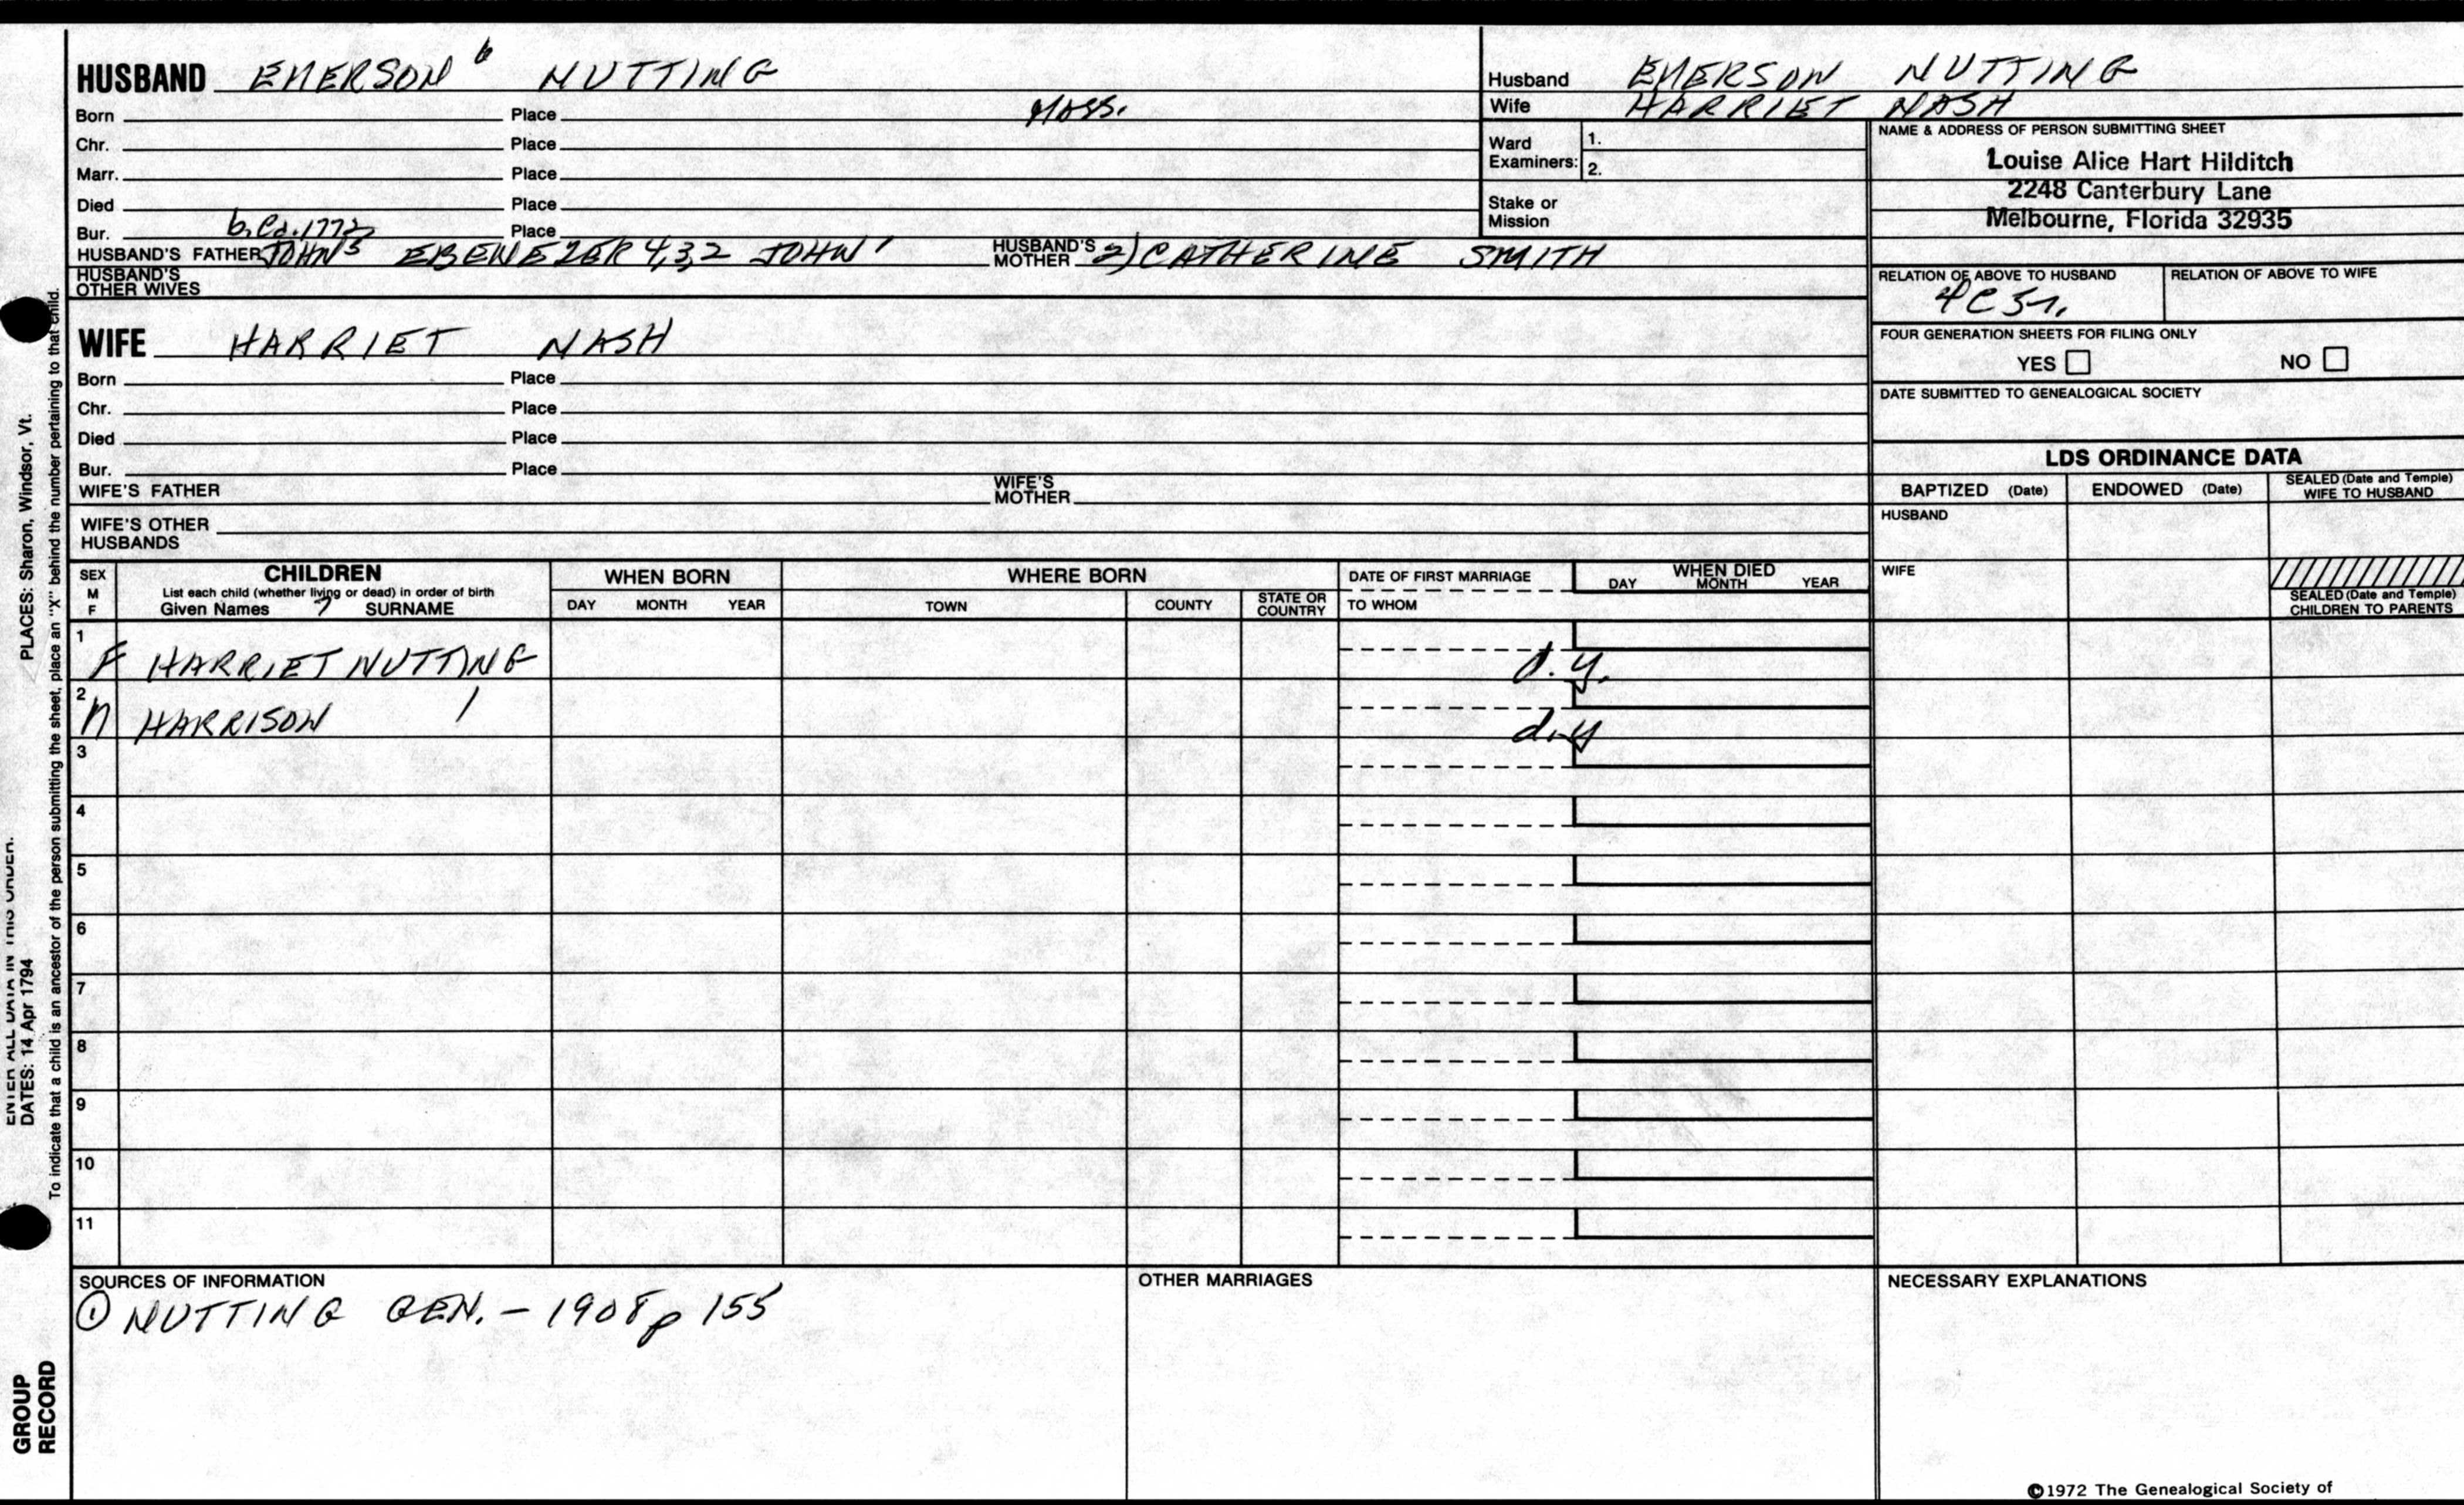 HUSBAND EMERSON 6 NUTTING
Born Place Mass.
Chr. Place
Marr. Place
Died Place
Bur. b.Ca.1772 Place
HUSBAND'S FATHER JOHN 5 EBENEZER 4,3,2 JOHN 1 HUSBAND'S MOTHER 2) CATHERINE SMITH
HUSBAND'S OTHER WIVES
Husband EMERSON NUTTING
Wife HARRIET NASH
Ward Examiners: 1.
2.
Stake or Mission
NAME & ADDRESS OF PERSON SUBMITTING SHEET
Louise Alice Hart Hilditch
2248 Canterbury Lane
Melbourne, Florida 32935
RELATION OF ABOVE TO HUSBAND RELATION OF ABOVE TO WIFE
4C5r.
FOUR GENERATION SHEETS FOR FILING ONLY
YES NO
DATE SUBMITTED TO GENEALOGICAL SOCIETY
WIFE HARRIET NASH
Born Place
Chr. Place
Died Place
Bur. Place
WIFE'S FATHER WIFE'S MOTHER
WIFE'S OTHER HUSBANDS
LDS ORDINANCE DATA
BAPTIZED (Date) ENDOWED (Date) SEALED (Date and Temple) WIFE TO HUSBAND
HUSBAND
WIFE
SEALED (Date and Temple) CHILDREN TO PARENTS
SEX M F
CHILDREN
List each child (whether living or dead) in order of birth
Given Names 7 SURNAME
WHEN BORN
DAY MONTH YEAR
WHERE BORN
TOWN COUNTY STATE OR COUNTRY
DATE OF FIRST MARRIAGE
TO WHOM
WHEN DIED
DAY MONTH YEAR
1
F HARRIET NUTTING d.y.
2
M HARRISON / d.y
3
4
5
6
7
8
9
10
11
SOURCES OF INFORMATION
① NUTTING GEN. - 1908 p 155
OTHER MARRIAGES
NECESSARY EXPLANATIONS
©1972 The Genealogical Society of
ENTER ALL DATA IN THIS ORDER.
DATES: 14 Apr 1794 PLACES: Sharon, Windsor, Vt.
To indicate that a child is an ancestor of the person submitting the sheet, place an "X" behind the number pertaining to that child.
GROUP
RECORD